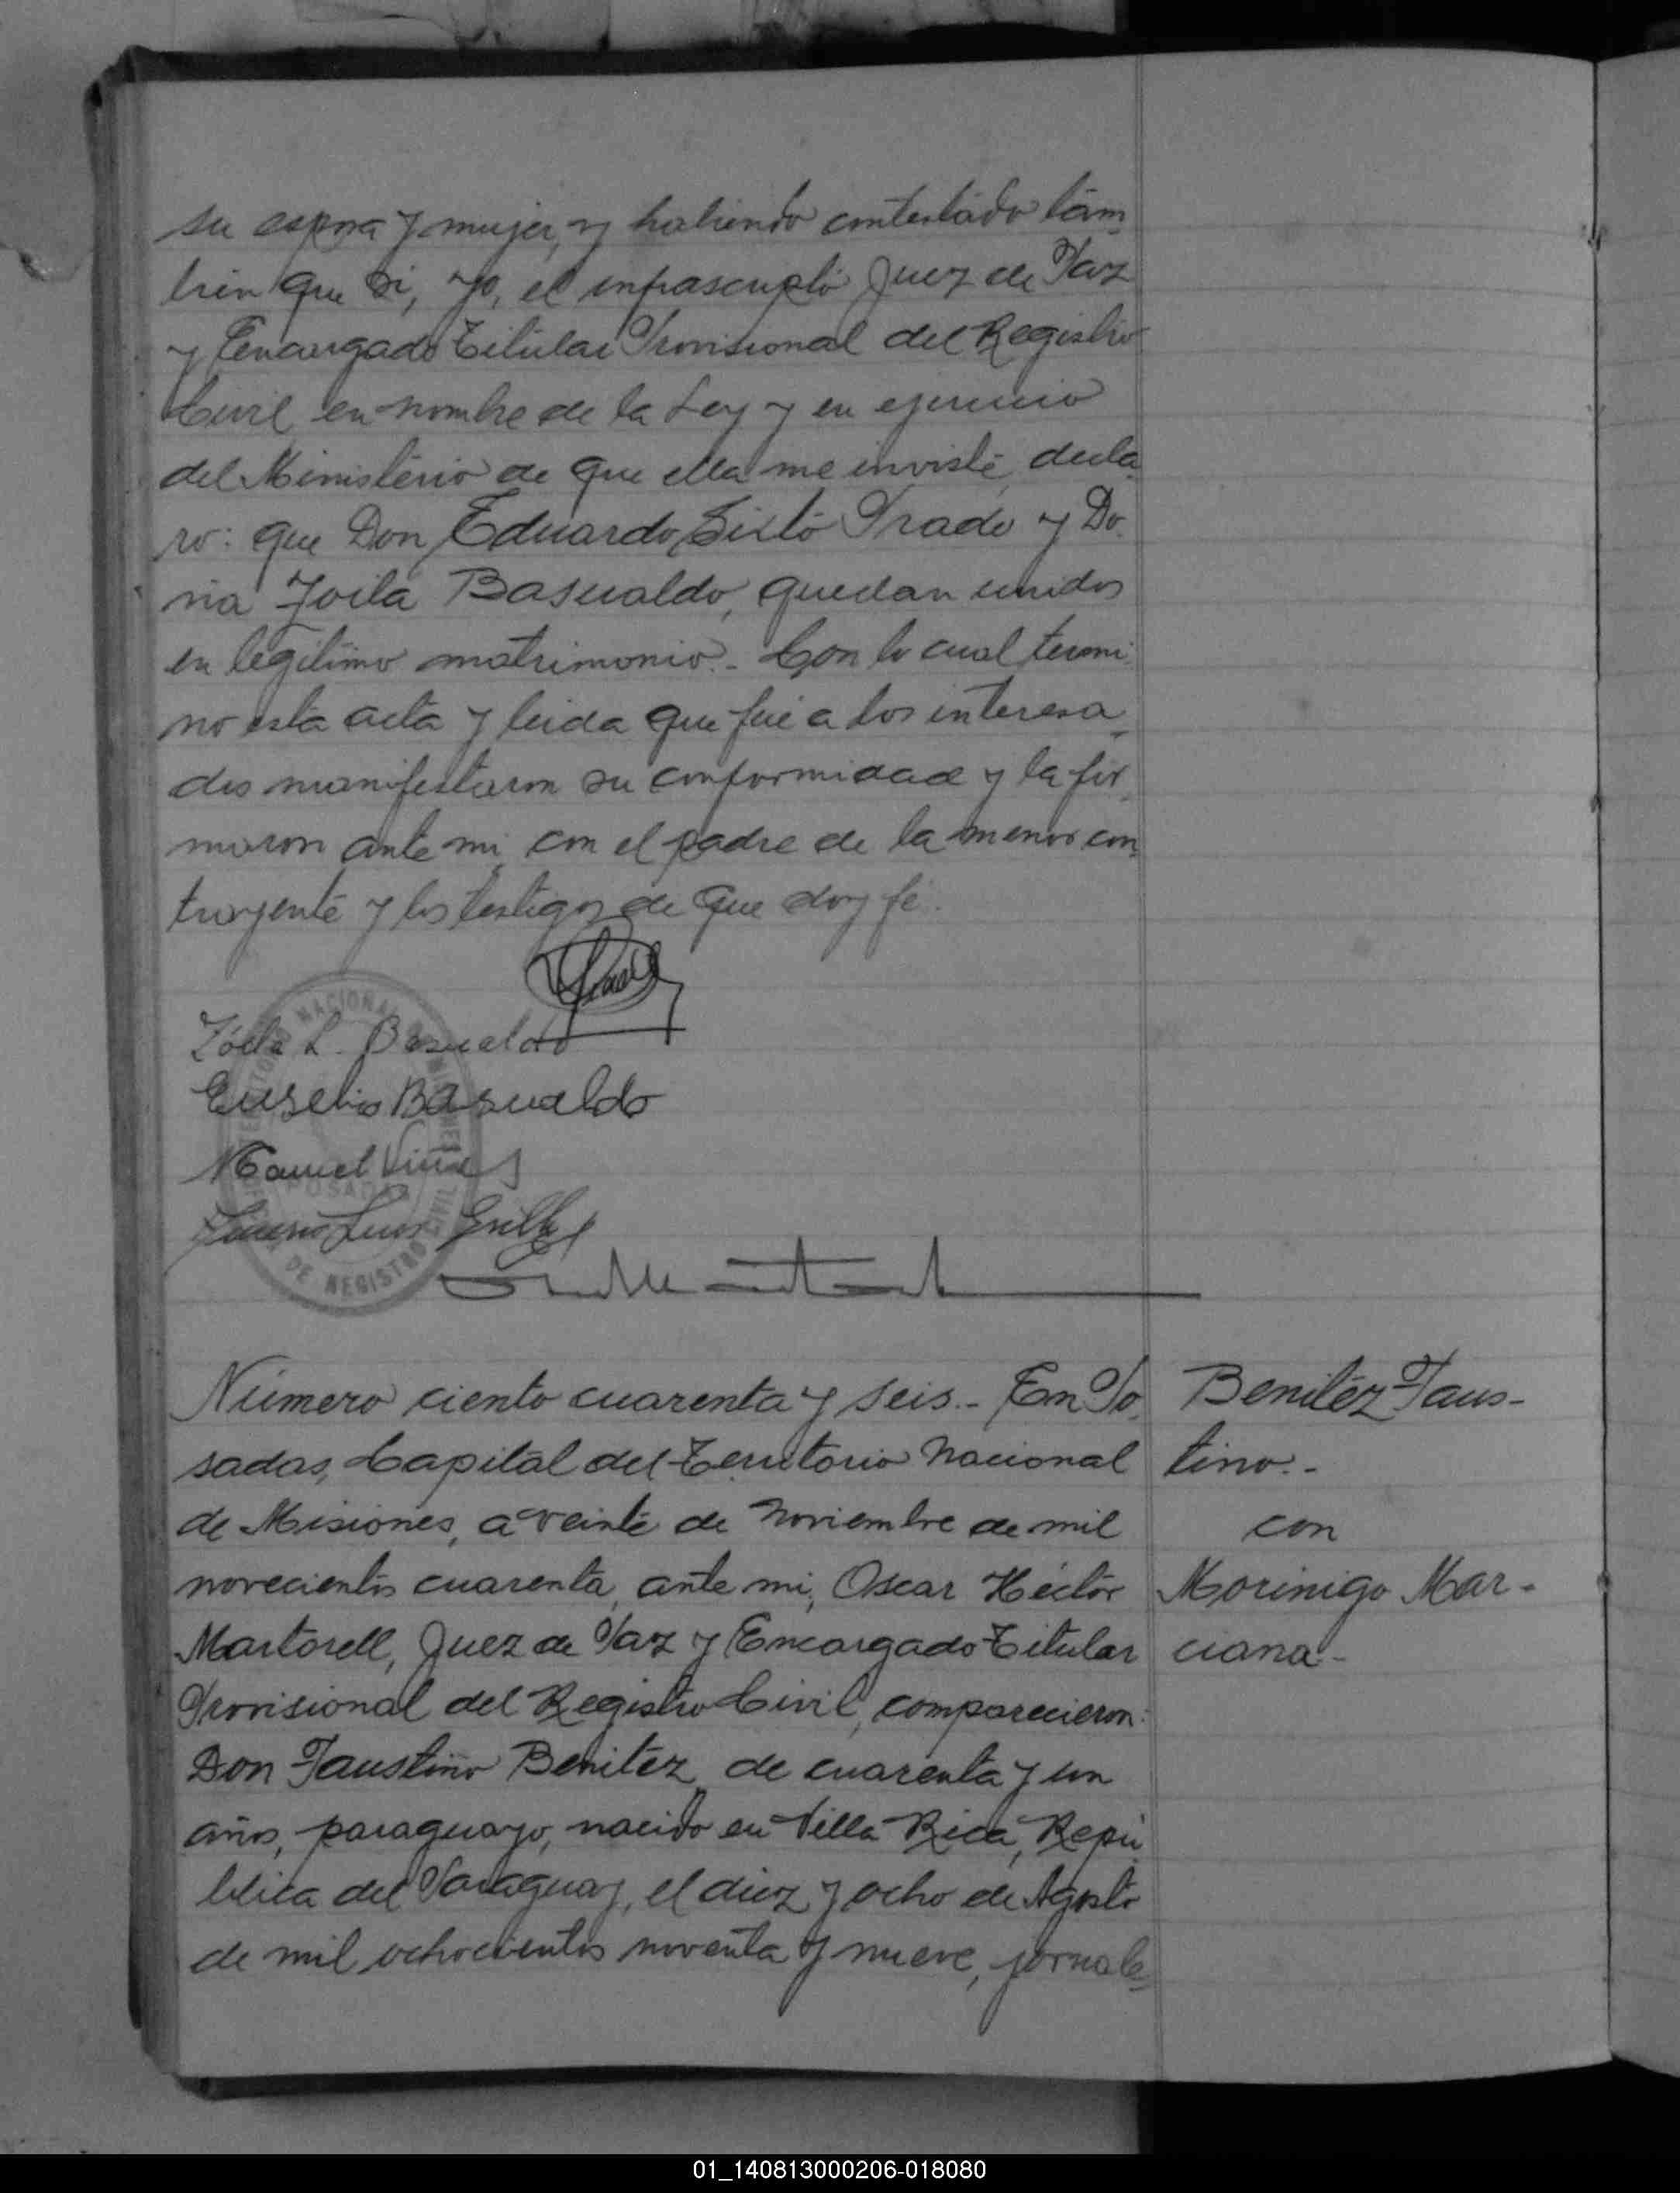 su esposa y mujer, y habiendo contestado tam
bien que si, yo, el infrascripto Juez de Paz
y Encargado Titular Provisional del Registro
Civil, en nombre de la Ley y en ejercicio
del Ministerio de que ella me inviste, decla
ro: que Don Eduardo Sixto Prade y Do
ña Zoila Basualdo, quedan unidos
en legitimo matrimonio.- Con lo cual termi
no esta acta y leida que fué a los interesa
dos manifestaron su conformidad y la fir
maron ante mi, con el padre de la menor con
trayente y los testigos de que doy fé.
Zóila L. Basualdo
Eusebio Basualdo
Manuel Viñas
Luis
NACIONAL DE MISIONES
POSADAS
DE REGISTRO CIVIL
Número ciento cuarenta y seis.- En Po
sadas, Capital del Territorio Nacional
de Misiones, a veinte de Noviembre de mil
novecientos cuarenta, ante mi, Oscar Héctor
Martorell, Juez de Paz y Encargado Titular
Provisional del Registro Civil, comparecieron:
Don Faustino Benitez, de cuarenta y un
años, paraguayo, nacido en Villa Rica, Repú
blica del Paraguay, el diez y ocho de Agosto
de mil ochocientos noventa y nueve, jornale
Benitez Faus-
tino.-
con
Morinigo Mar-
ciana.-
01_140813000206-018080